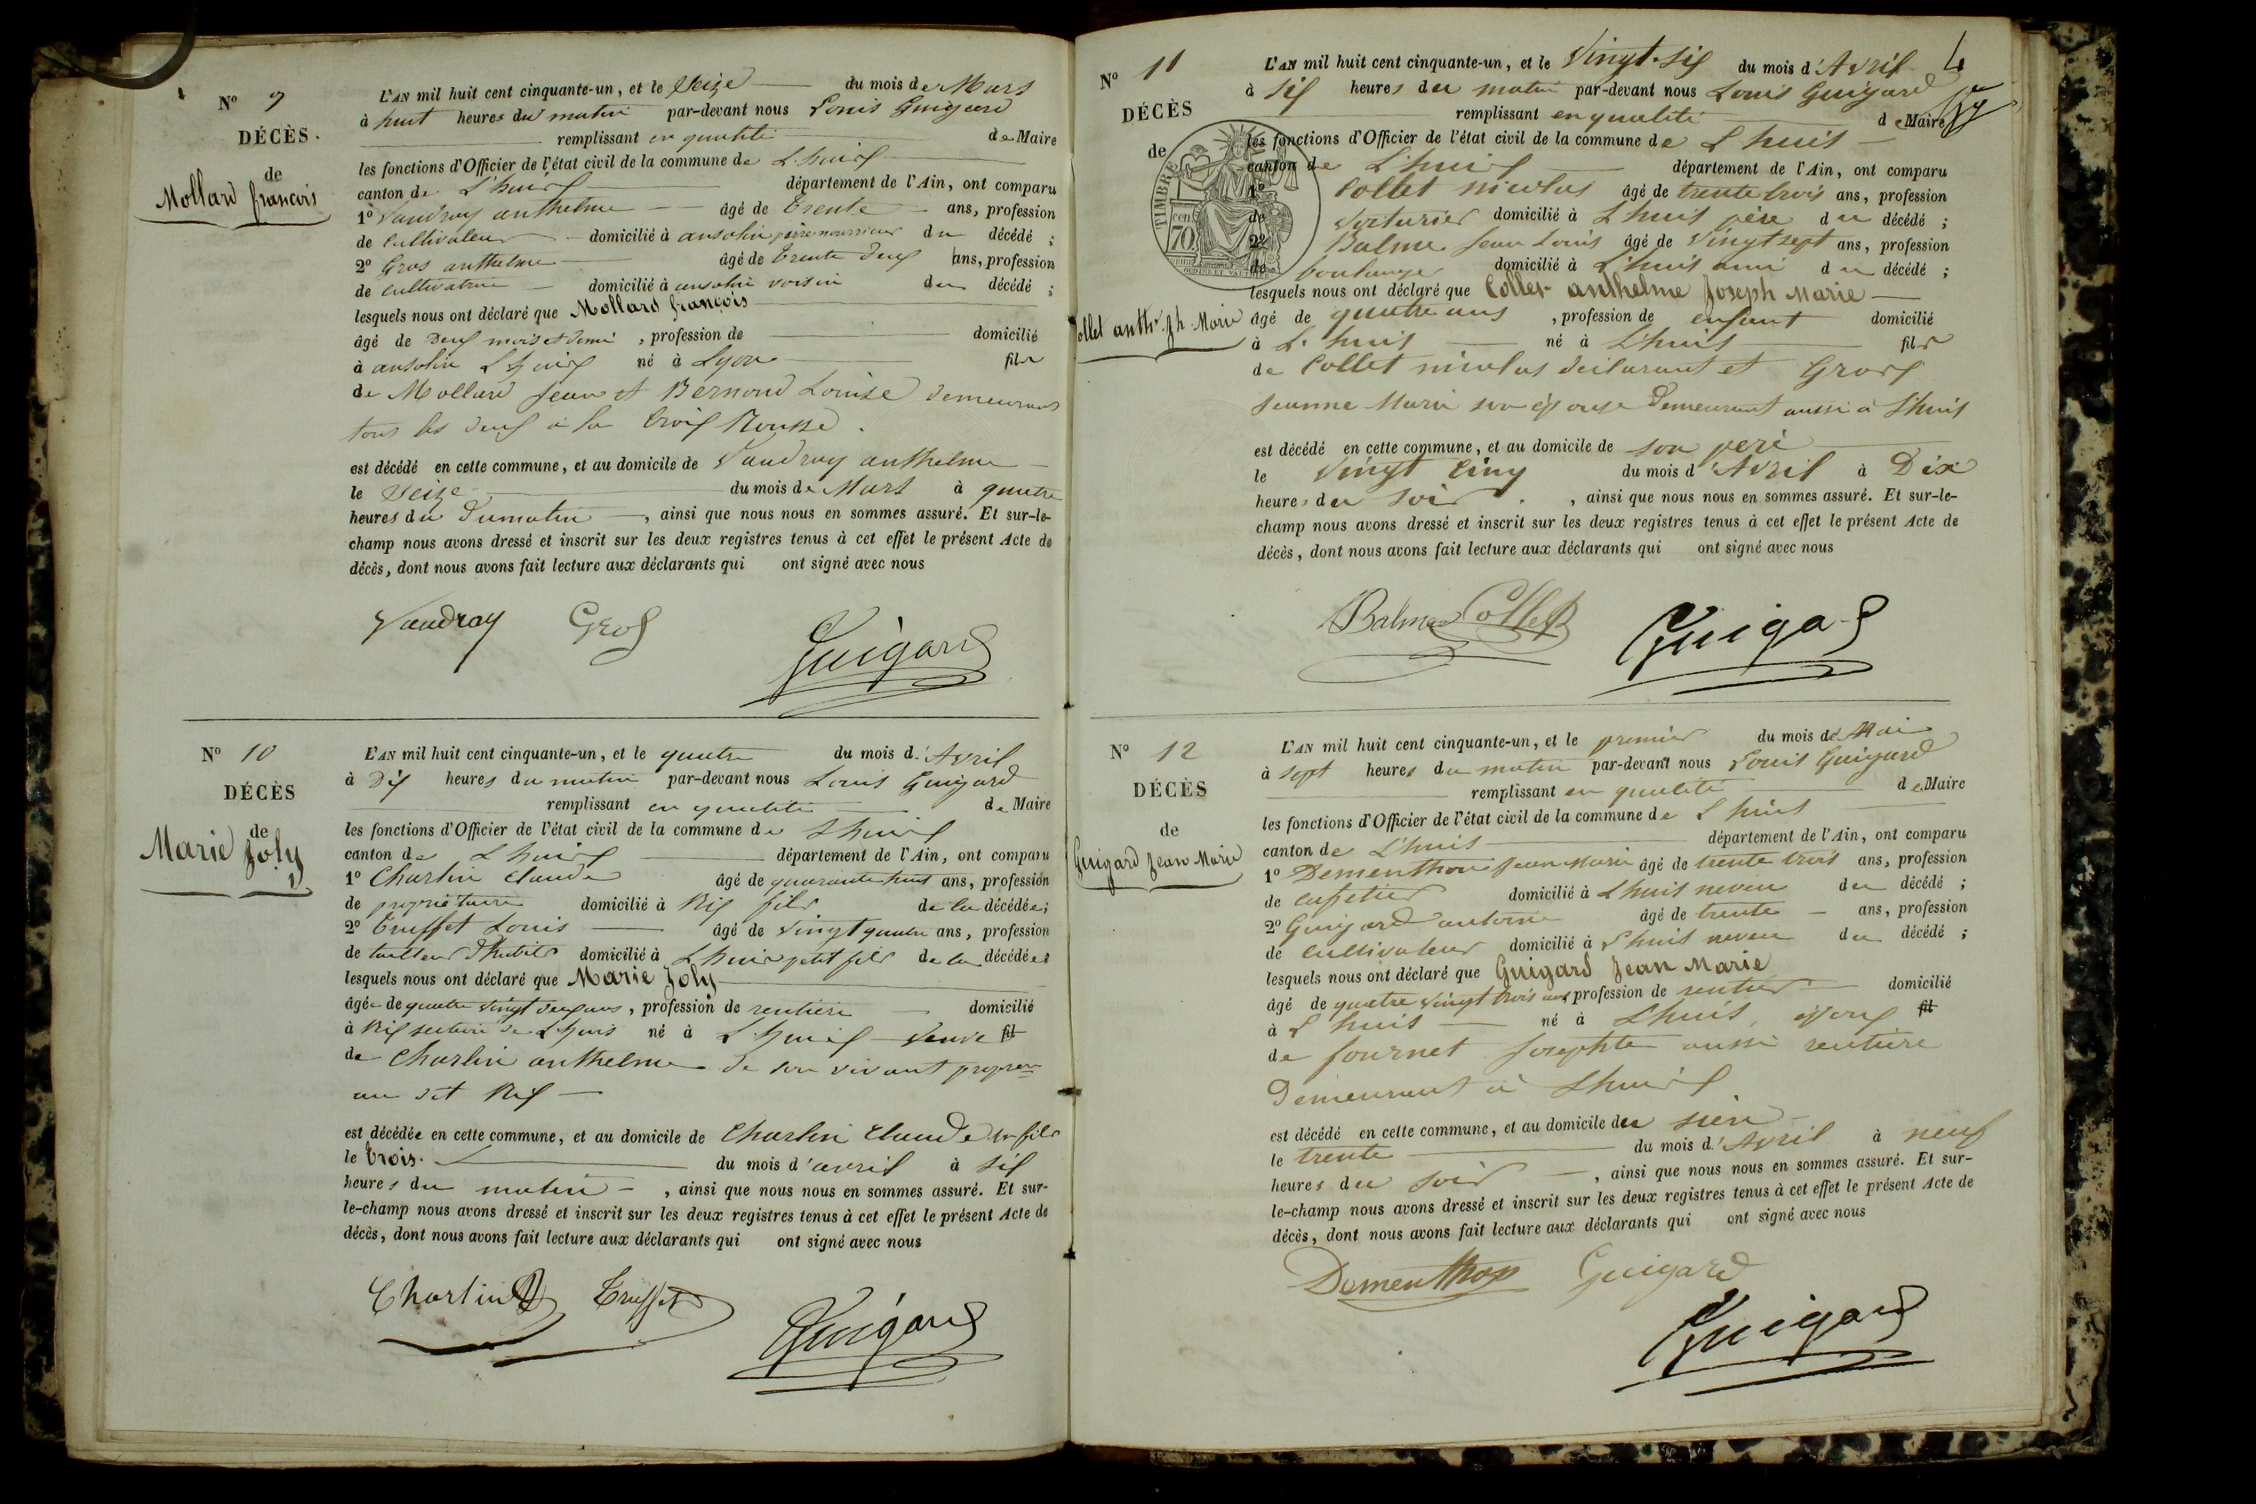 N° 9
DÉCÈS.
de
Mollard françois
L'AN mil huit cent cinquante-un, et le Seize du mois de Mars
à huit heures du matin par-devant nous Louis Guigard
remplissant en qualité de Maire
les fonctions d'Officier de l'état civil de la commune de L'huis
canton de L'huis département de l'Ain, ont comparu
1° Vaudray anthelme âgé de trente ans, profession
de cultivateur domicilié à ansolin père nourricier du décédé ;
2° Gros anthelme âgé de trente deux ans, profession
de cultivateur domicilié à ansolin voisin du décédé ;
lesquels nous ont déclaré que Mollard françois
âgé de deux mois et demi , profession de domicilié
à ansolin L'huis né à Lyon fils
de Mollard Jean et Bernond Louise demeurant
tous les deux à la Croix Rousse.
est décédé en cette commune, et au domicile de Vaudray anthelme
le Seize du mois de Mars à quatre
heures du du matin , ainsi que nous nous en sommes assuré. Et sur-le-
champ nous avons dressé et inscrit sur les deux registres tenus à cet effet le présent Acte de
décès, dont nous avons fait lecture aux déclarants qui ont signé avec nous
Vaudray Gros Guigard
N° 10
DÉCÈS
de
Marie Joly
L'AN mil huit cent cinquante-un, et le quatre du mois d'Avril
à Dix heures du matin par-devant nous Louis Guigard
remplissant en qualité de Maire
les fonctions d'Officier de l'état civil de la commune de L'huis
canton de L'huis département de l'Ain, ont comparu
1° Charlin Claude âgé de quarante huit ans, profession
de propriétaire domicilié à Rix fils de la décédée ;
2° Truffet Louis âgé de vingt quatre ans, profession
de tailleur d'habits domicilié à L'huis petit fils de la décédée
lesquels nous ont déclaré que Marie Joly
âgée de quatre vingt deux ans , profession de rentière domicilié
à Rix section de L'huis né à L'huis veuve fil
de Charlin anthelme de son vivant propre
au dit Rix
est décédée en cette commune, et au domicile de Charlin Claude son fils
le trois. du mois d'avril à six
heures du matin , ainsi que nous nous en sommes assuré. Et sur-
le-champ nous avons dressé et inscrit sur les deux registres tenus à cet effet le présent Acte de
décès, dont nous avons fait lecture aux déclarants qui ont signé avec nous
Charlin Truffet Guigard
4
N° 11
DÉCÈS
de
Collet anthe Jh Marie
TIMBRE
70 cen
L'AN mil huit cent cinquante-un, et le Vingt-Six du mois d'Avril
à Six heures du matin par-devant nous Louis Guigard
remplissant en qualité de Maire
les fonctions d'Officier de l'état civil de la commune de L'huis
canton de L'huis département de l'Ain, ont comparu
1° Collet nicolas âgé de trente trois ans, profession
de voiturier domicilié à L'huis père du décédé ;
2° Balme Jean Louis âgé de vingt sept ans, profession
de boulanger domicilié à L'huis ami du décédé ;
lesquels nous ont déclaré que Collet anthelme Joseph Marie
âgé de quatre ans , profession de enfant domicilié
à L'huis né à L'huis fils
de Collet nicolas déclarant et Grosf
Jeanne Marie son épouse demeurant aussi à L'huis
est décédé en cette commune, et au domicile de son père
le vingt cinq du mois d'Avril à Dix
heures du soir , ainsi que nous nous en sommes assuré. Et sur-le-
champ nous avons dressé et inscrit sur les deux registres tenus à cet effet le présent Acte de
décès, dont nous avons fait lecture aux déclarants qui ont signé avec nous
Balme Collet Guigard
N° 12
DÉCÈS
de
Guigard Jean Marie
L'AN mil huit cent cinquante-un, et le premier du mois de Mai
à sept heures du matin par-devant nous Louis Guigard
remplissant en qualité de Maire
les fonctions d'Officier de l'état civil de la commune de L'huis
canton de L'huis département de l'Ain, ont comparu
1° Dementhon Jean Marie âgé de trente trois ans, profession
de cafetier domicilié à L'huis neveu du décédé ;
2° Guigard antoine âgé de trente ans, profession
de cultivateur domicilié à L'huis neveu du décédé ;
lesquels nous ont déclaré que Guigard Jean Marie
âgé de quatre vingt trois ans profession de rentier domicilié
à L'huis né à L'huis, époux fil
de fournet Josephte aussi rentière
demeurant à L'huis
est décédé en cette commune, et au domicile du sien
le trente du mois d'Avril à neuf
heures du soir , ainsi que nous nous en sommes assuré. Et sur-
le-champ nous avons dressé et inscrit sur les deux registres tenus à cet effet le présent Acte de
décès, dont nous avons fait lecture aux déclarants qui ont signé avec nous
Dementhon Guigard
Guigard